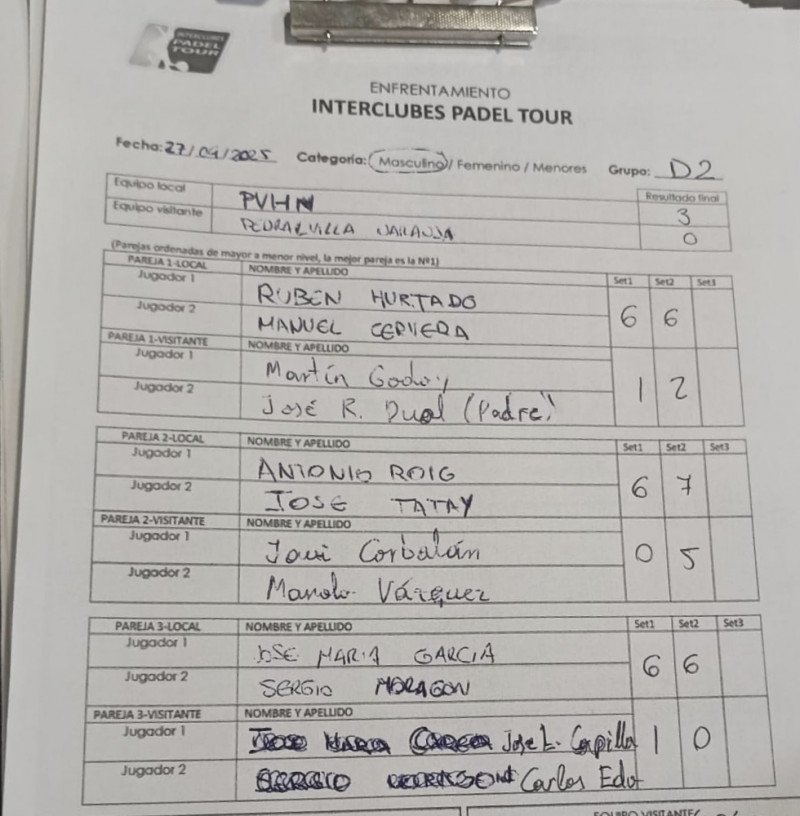 INTERCLUBES
PADEL
TOUR
ENFRENTAMIENTO
INTERCLUBES PADEL TOUR
Fecha: 27/04/2025 Categoría: Masculino / Femenino / Menores Grupo: D2
Resultado final
Equipo local PVHN 3
Equipo visitante PEDRALVILLA NARANJA 0
(Parejas ordenadas de mayor a menor nivel, la mejor pareja es la Nº1)
PAREJA 1-LOCAL NOMBRE Y APELLIDO Set1 Set2 Set3
Jugador 1 RUBEN HURTADO
Jugador 2 MANUEL CERVERA 6 6
PAREJA 1-VISITANTE NOMBRE Y APELLIDO
Jugador 1 Martín Godoy
Jugador 2 José R. Dual (Padre) 1 2
PAREJA 2-LOCAL NOMBRE Y APELLIDO Set1 Set2 Set3
Jugador 1 ANTONIO ROIG
Jugador 2 JOSE TATAY 6 7
PAREJA 2-VISITANTE NOMBRE Y APELLIDO
Jugador 1 Javi Corbalán
Jugador 2 Manolo Vázquez 0 5
PAREJA 3-LOCAL NOMBRE Y APELLIDO Set1 Set2 Set3
Jugador 1 JOSE MARIA GARCIA
Jugador 2 SERGIO MORAGON 6 6
PAREJA 3-VISITANTE NOMBRE Y APELLIDO
Jugador 1 Jose L. Capilla 1 0
Jugador 2 Carlos Edo
EQUIPO VISITANTE/